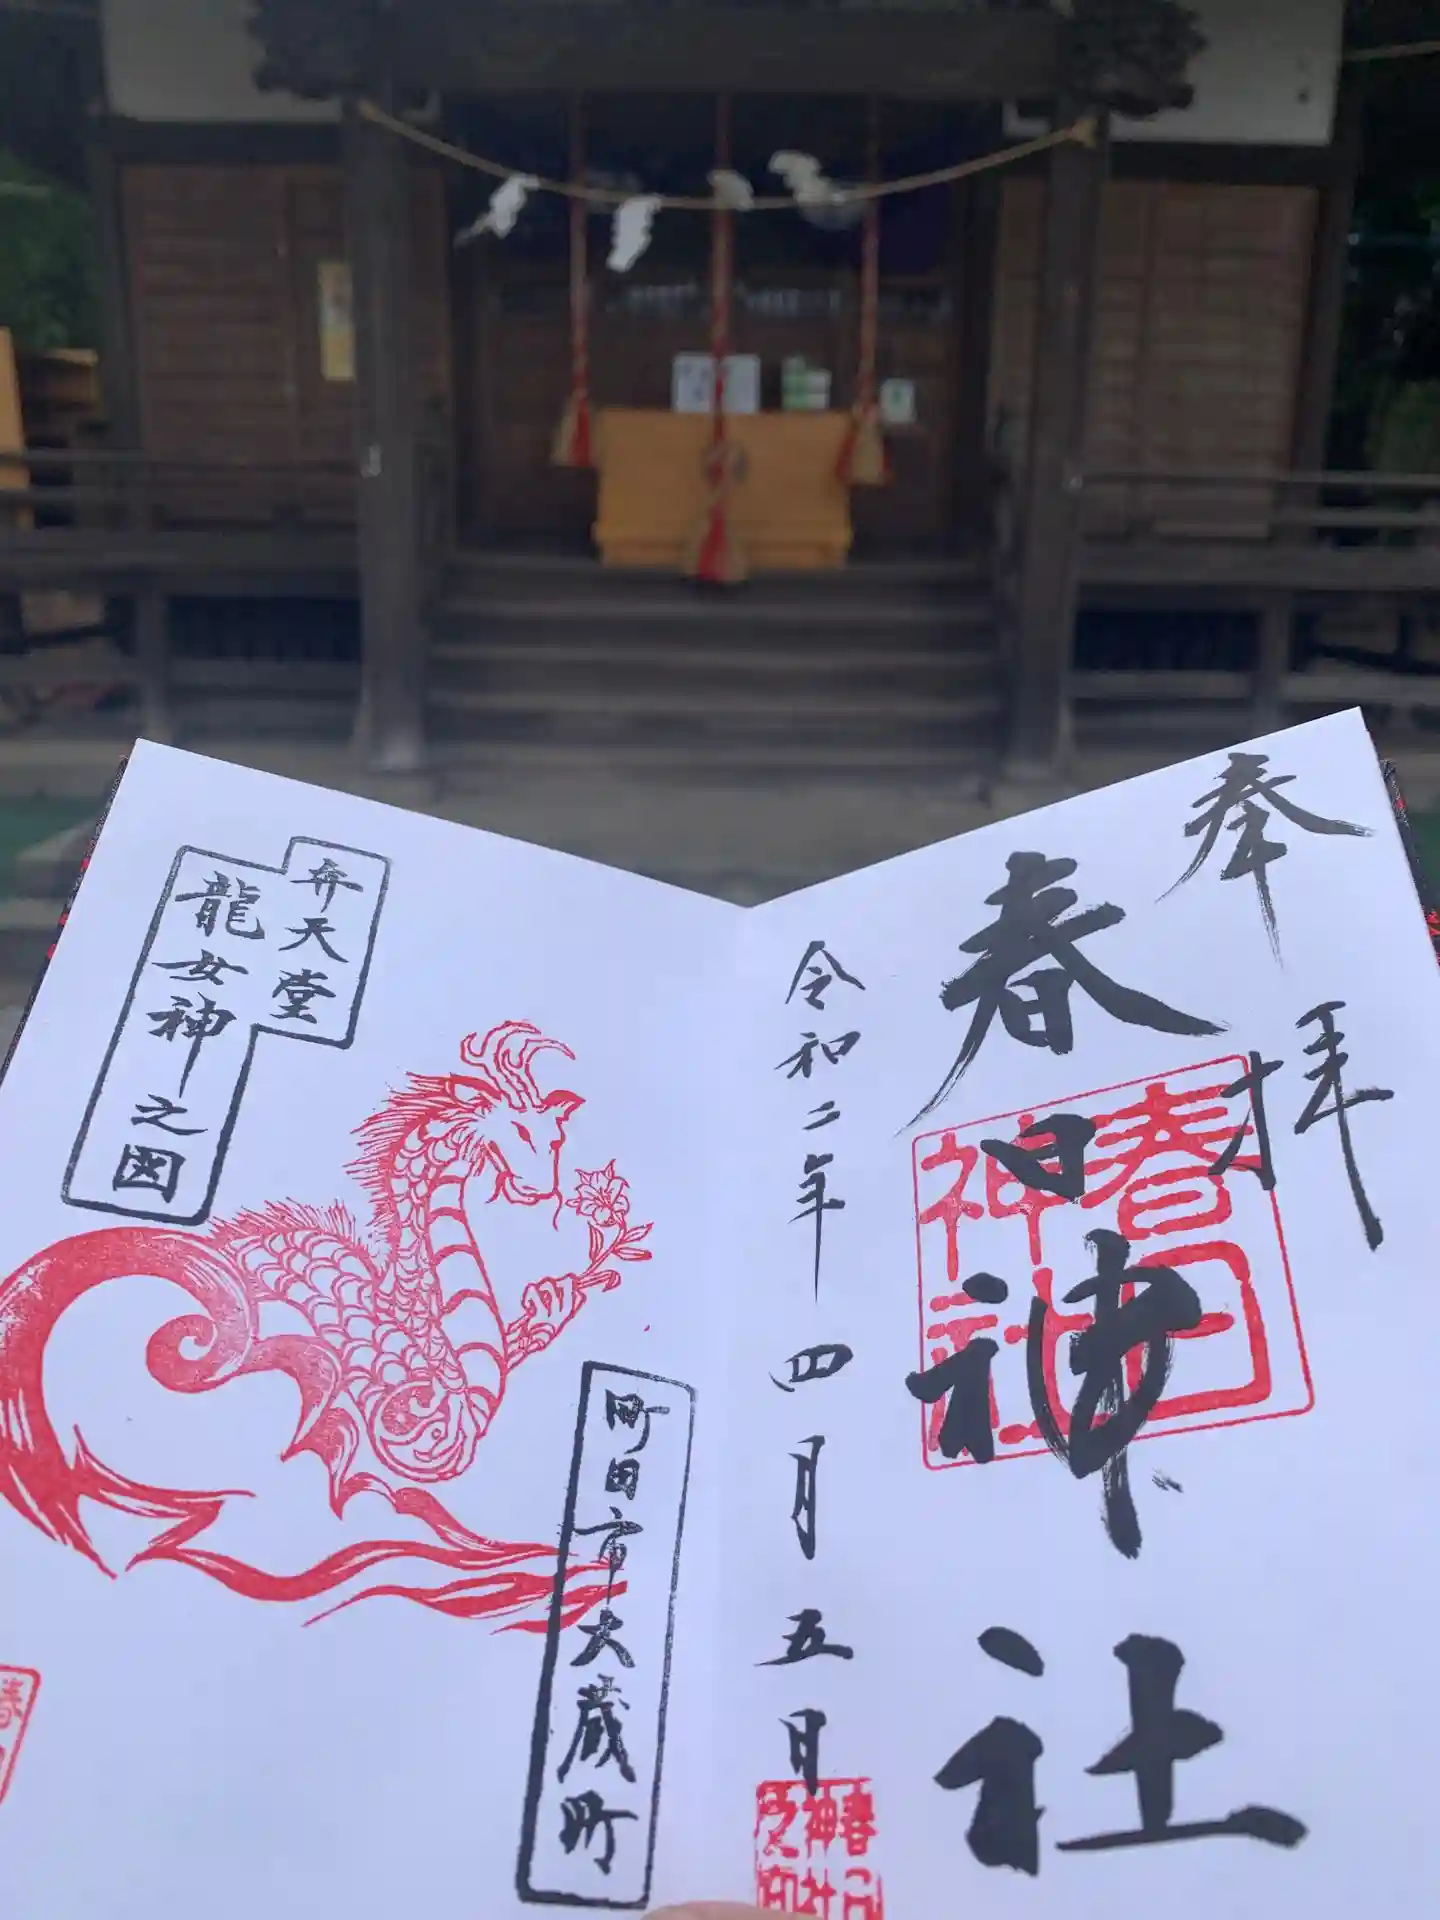 奉拝
春日神社
春日神社
令和二年四月五日
春日神社之印
弁天堂
龍女神之図
町田市大蔵町
春